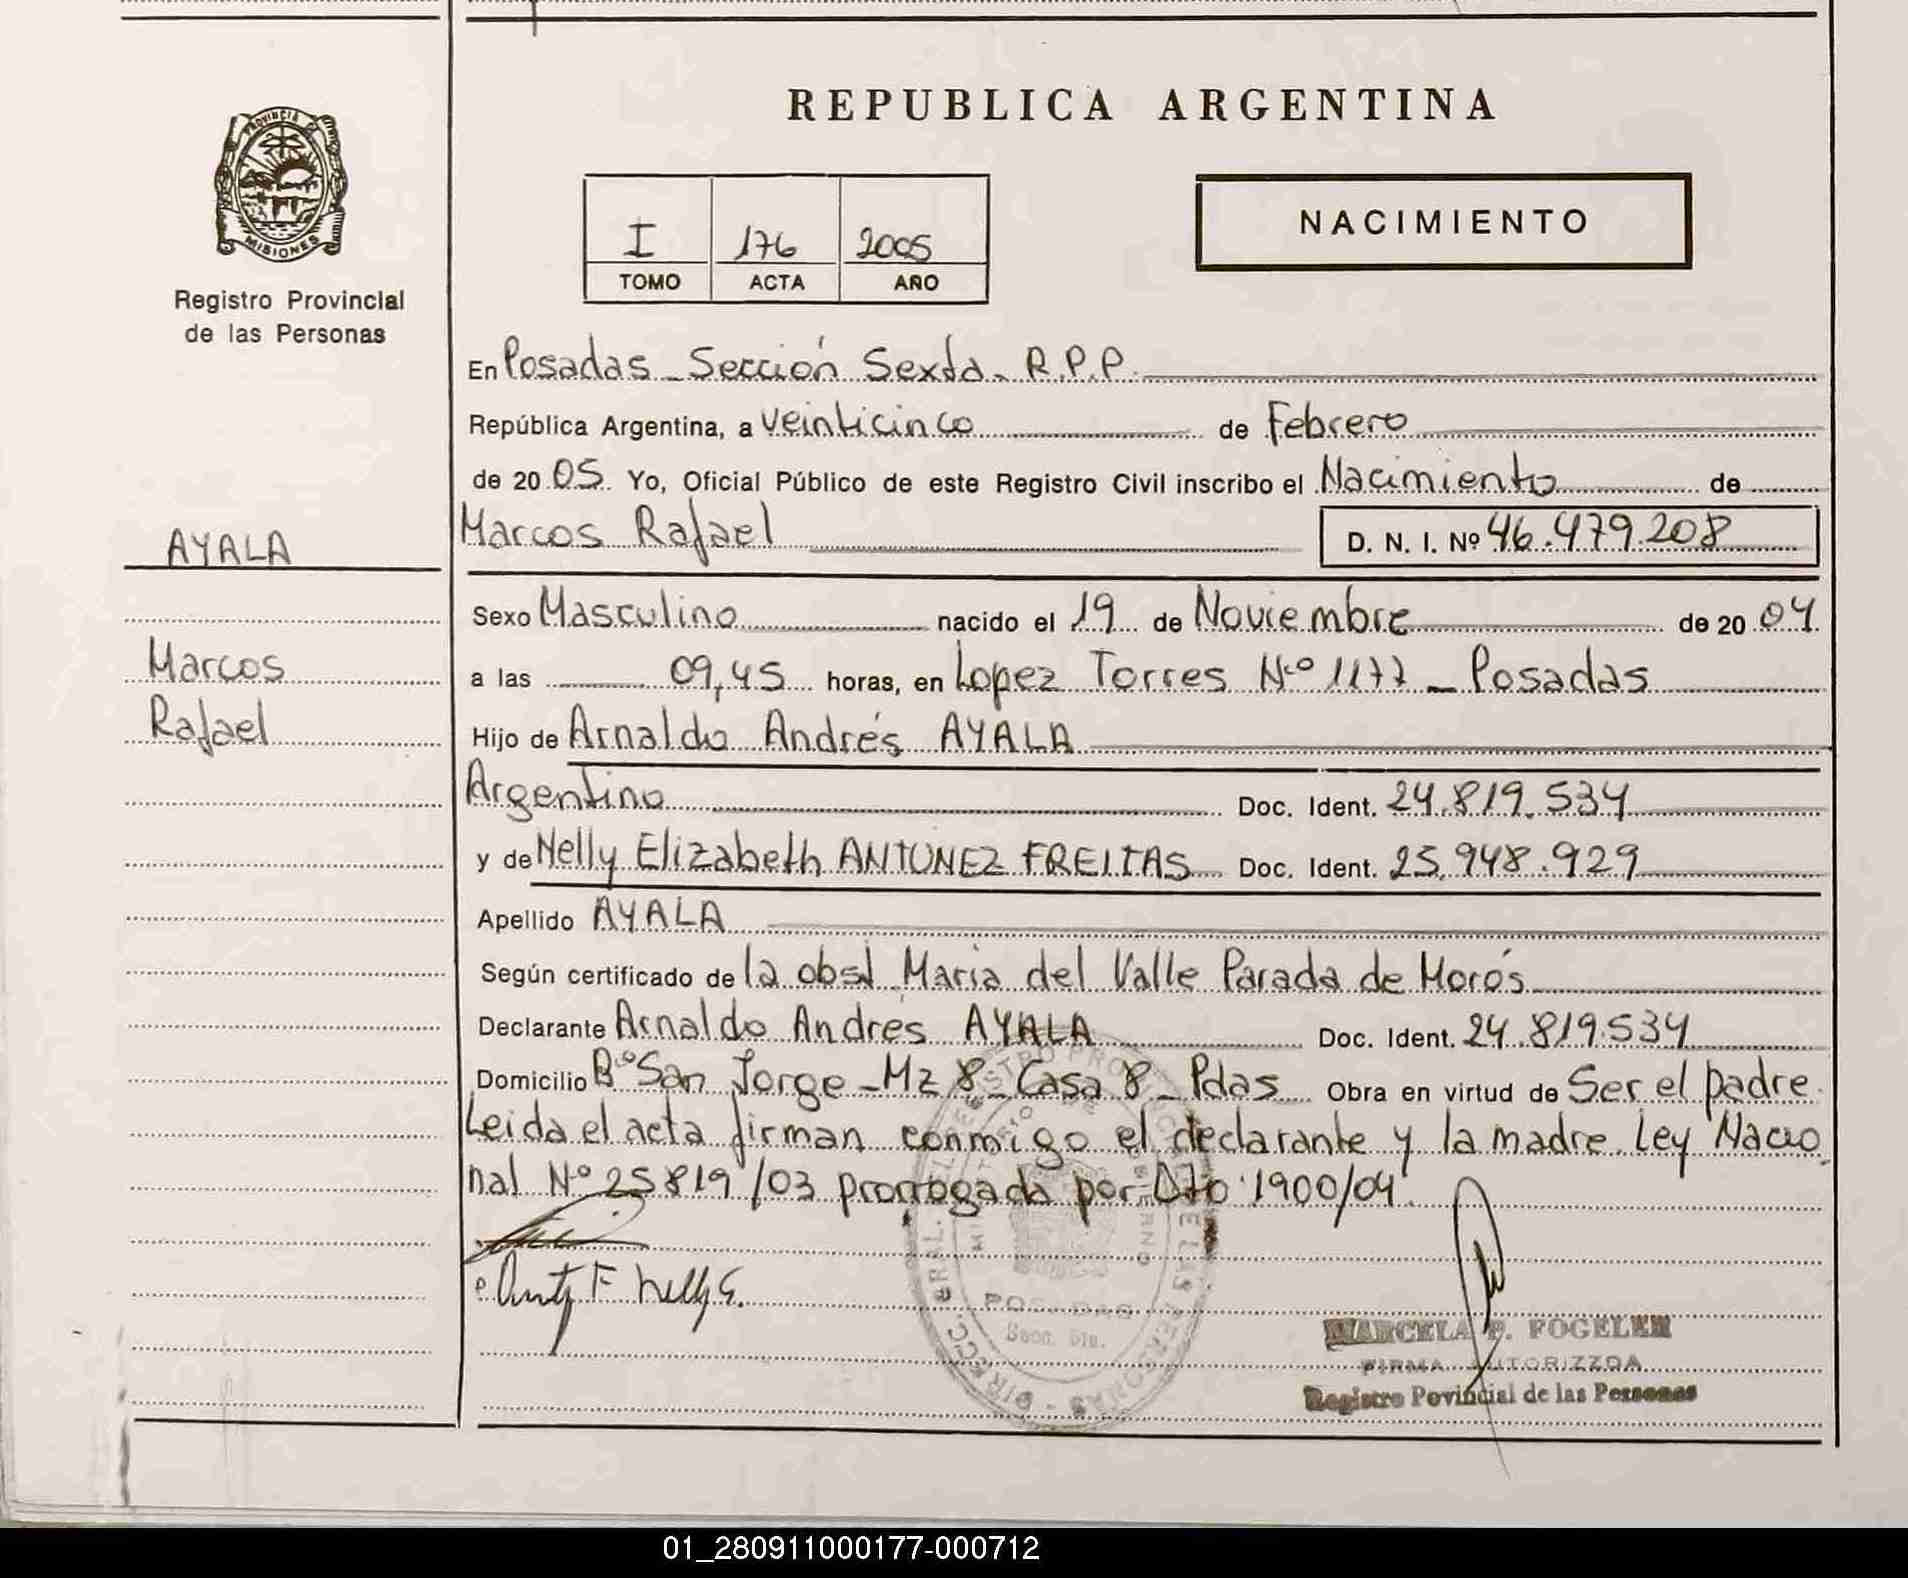 REPUBLICA ARGENTINA
PROVINCIA D
MISIONES
Registro Provincial
de las Personas
I 176 2005
TOMO ACTA AÑO
NACIMIENTO
En Posadas - Sección Sexta - R.P.P.
República Argentina, a veinticinco de Febrero
de 20 05 Yo, Oficial Público de este Registro Civil inscribo el Nacimiento de
AYALA
Marcos Rafael D. N. I. Nº 46.479.208
Sexo Masculino nacido el 19 de Noviembre de 20 04
Marcos
Rafael
a las 09,45 horas, en Lopez Torres Nº 1177 - Posadas
Hijo de Arnaldo Andrés AYALA
Argentino Doc. Ident. 24.819.534
y de Nelly Elizabeth ANTUNEZ FREITAS Doc. Ident. 25.948.929
Apellido AYALA
Según certificado de la obst Maria del Valle Parada de Morós
Declarante Arnaldo Andrés AYALA Doc. Ident. 24.819.534
Domicilio Bº San Jorge - Mz 8 - Casa 8 - Pdas Obra en virtud de Ser el padre.
Leida el acta firman conmigo el declarante y la madre. Ley Nacio
nal Nº 25819/03 prorrogada por Dto 1900/04.
F Nelly E.
POSADAS
Secc. 6ta.
MARCELA F. FOGELER
FIRMA AUTORIZZDA
Registro Povincial de las Personas
01_280911000177-000712